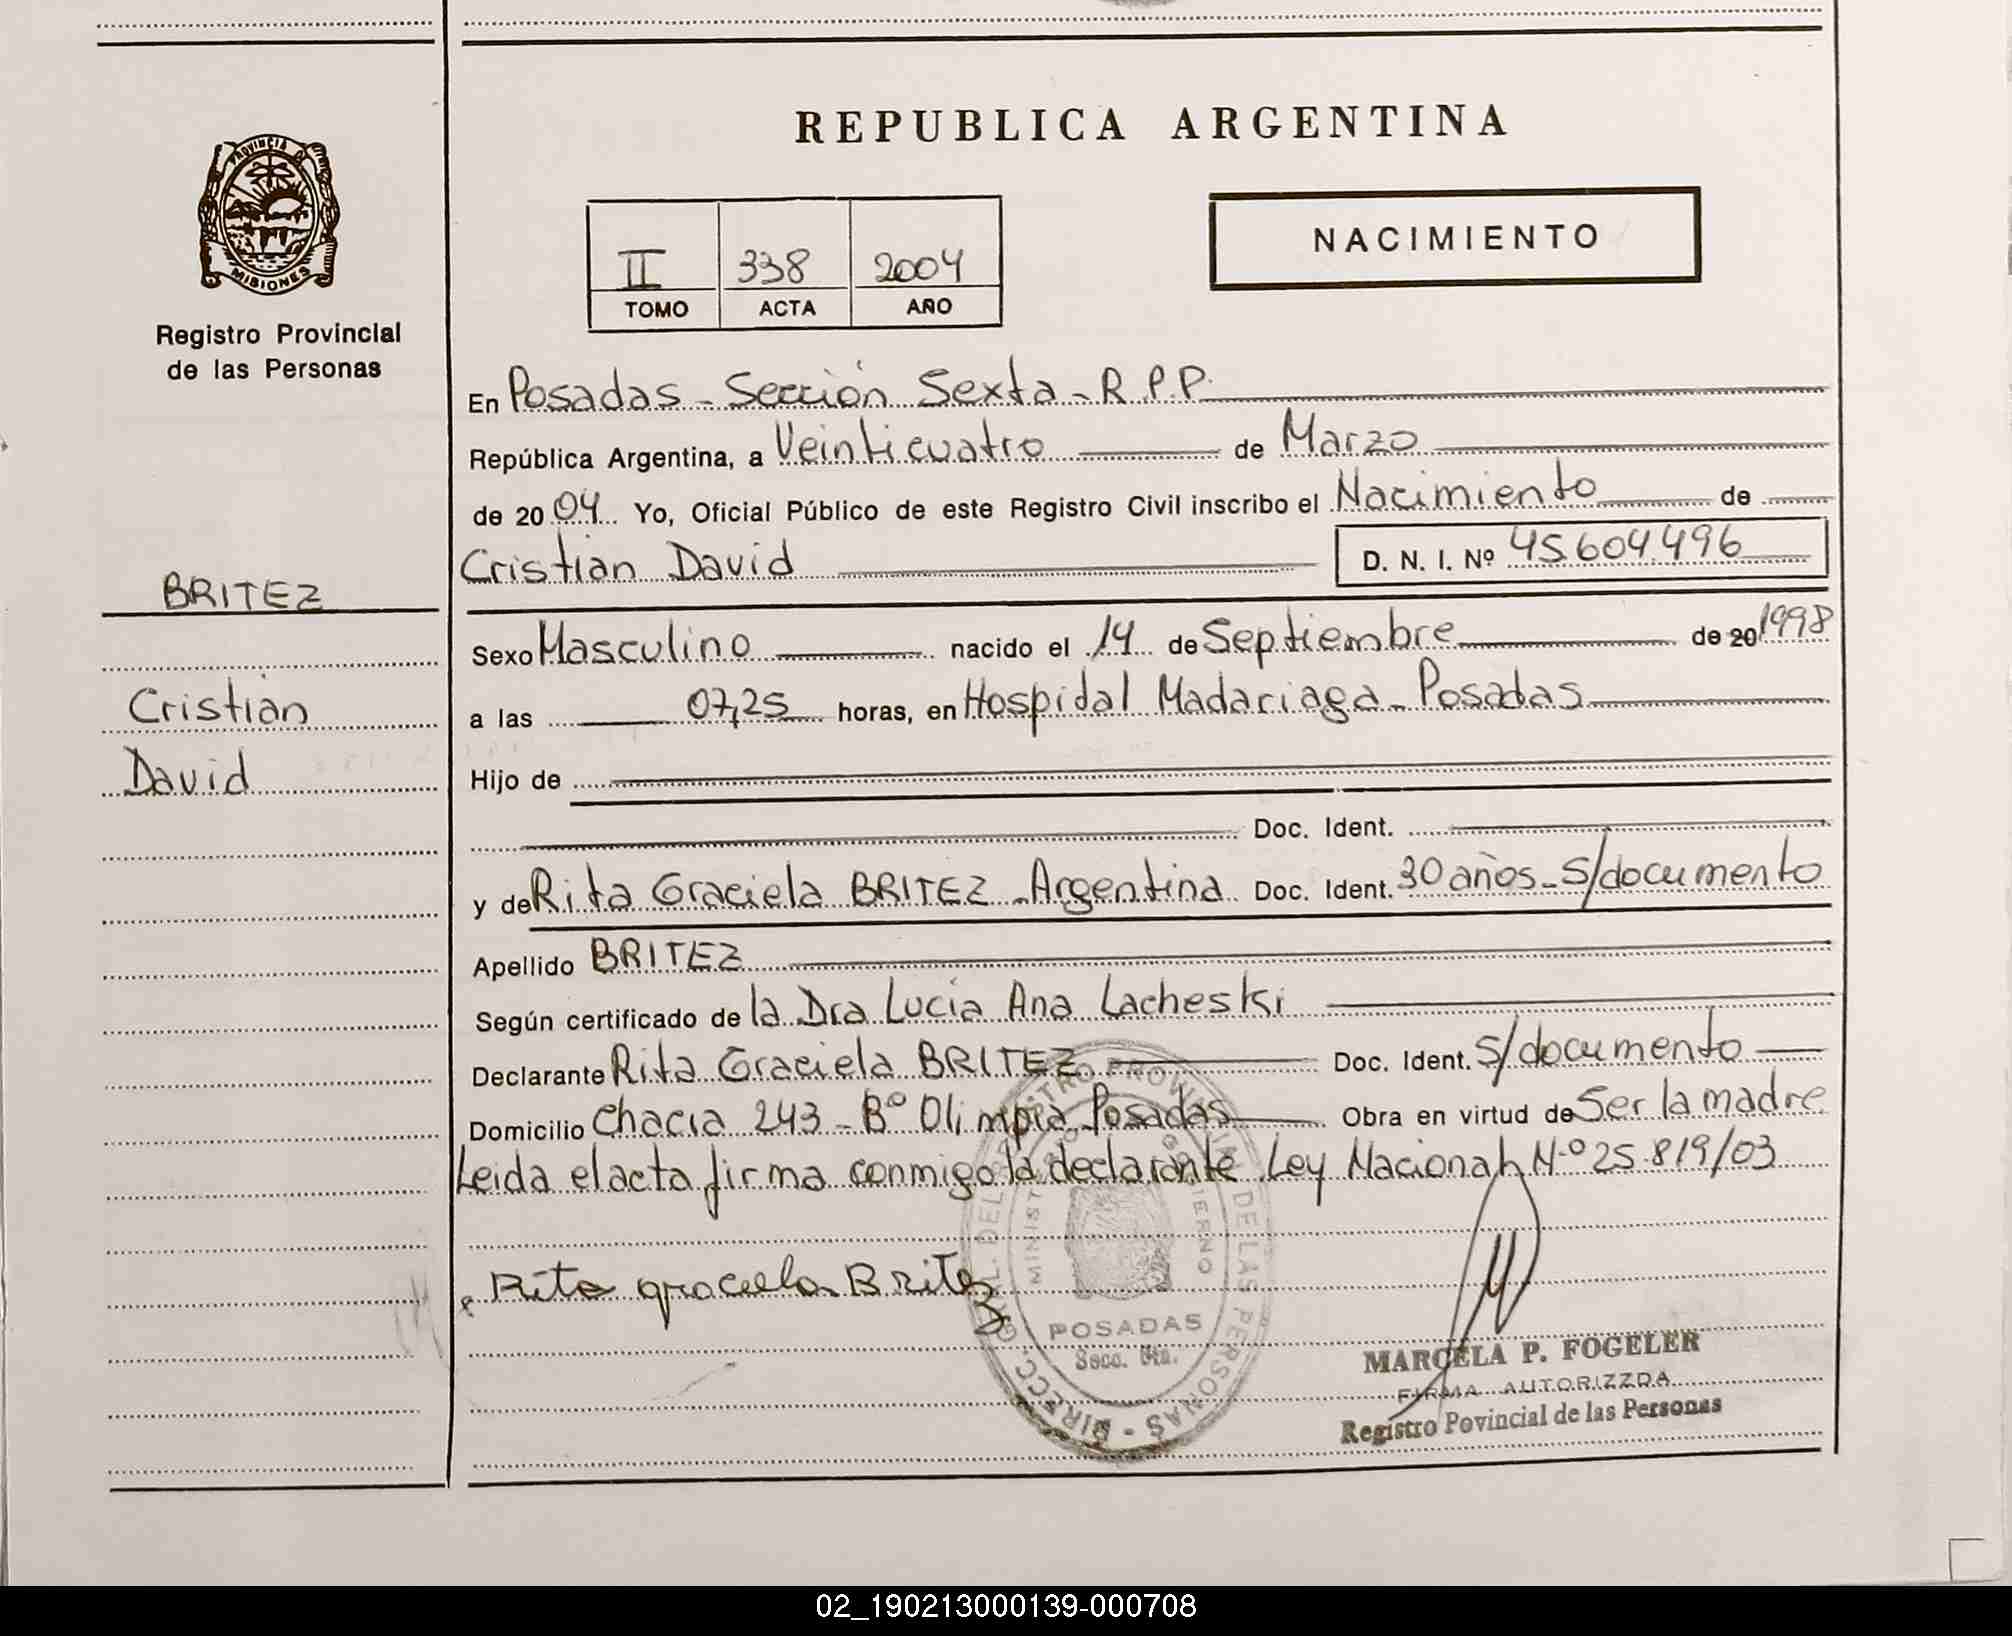 REPUBLICA ARGENTINA
PROVINCIA D
MISIONES
Registro Provincial
de las Personas
NACIMIENTO
II 338 2004
TOMO ACTA AÑO
En Posadas - Sección Sexta - R.P.P.
República Argentina, a Veinticuatro de Marzo
de 2004 Yo, Oficial Público de este Registro Civil inscribo el Nacimiento de
Cristian David D. N. I. Nº 45.604.496
BRITEZ
Cristian
David
Sexo Masculino nacido el 14 de Septiembre de 20 1998
a las 07,25 horas, en Hospital Madariaga - Posadas
Hijo de
Doc. Ident.
y de Rita Graciela BRITEZ - Argentina Doc. Ident. 30 años - s/documento
Apellido BRITEZ
Según certificado de la Dra Lucia Ana Lacheski
Declarante Rita Graciela BRITEZ Doc. Ident. s/documento
Domicilio Chacra 243 - Bº Olimpia Posadas Obra en virtud de Ser la madre
Leida el acta firma conmigo la declarante. Ley Nacional Nº 25.819/03
Rita graciela Britez
POSADAS
Secc. 6ta.
MARCELA P. FOGELER
FIRMA AUTORIZZDA
Registro Povincial de las Personas
02_190213000139-000708